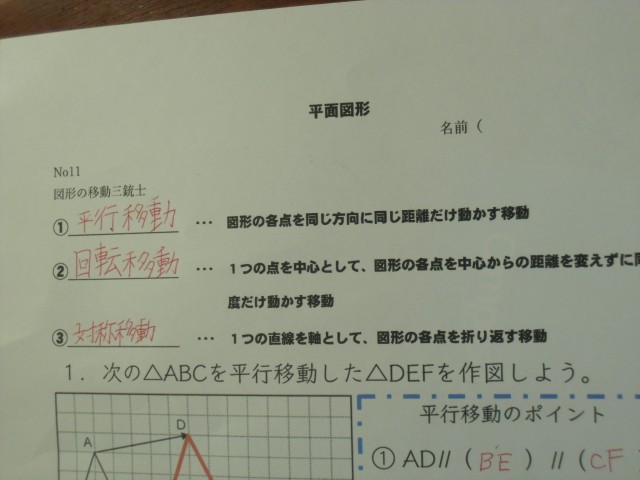 平面図形
名前（
No11
図形の移動三銃士
① 平行移動 … 図形の各点を同じ方向に同じ距離だけ動かす移動
② 回転移動 … １つの点を中心として、図形の各点を中心からの距離を変えずに同
度だけ動かす移動
③ 対称移動 … １つの直線を軸として、図形の各点を折り返す移動
１．次の△ABCを平行移動した△DEFを作図しよう。
平行移動のポイント
A D
① AD//（BE）//（CF